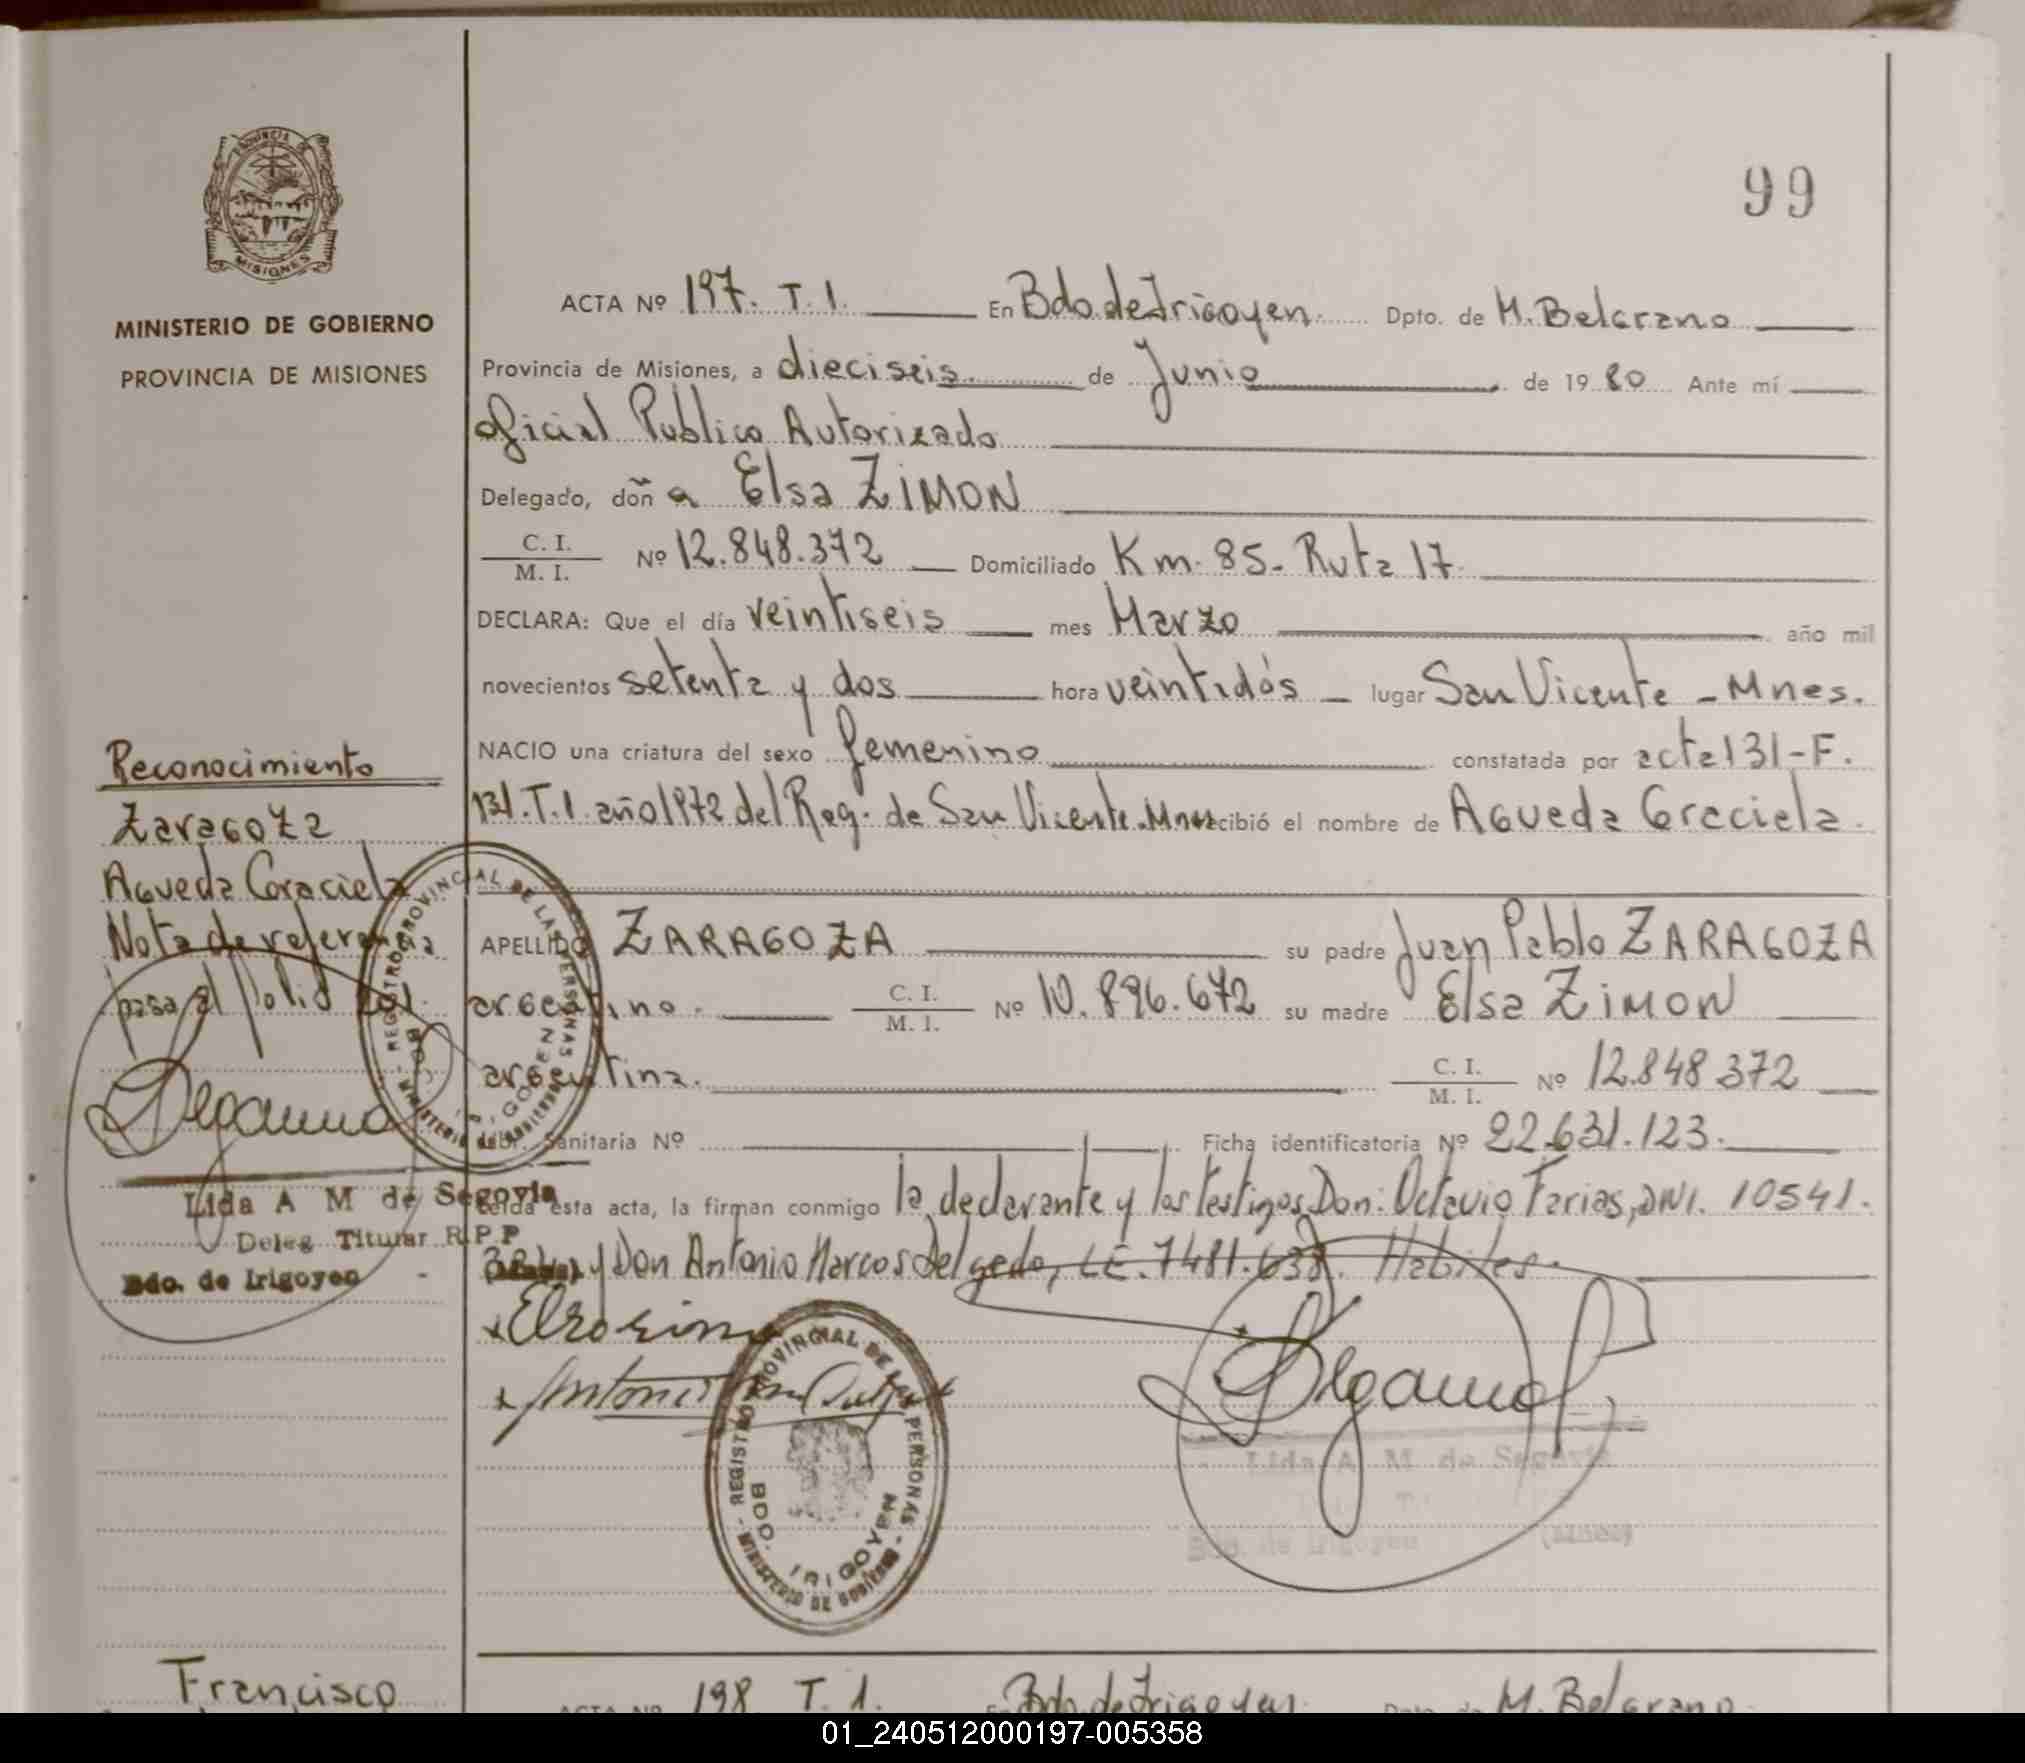 99
PROVINCIA DE
MISIONES
MINISTERIO DE GOBIERNO
PROVINCIA DE MISIONES
ACTA Nº 197. T. 1. En Bdo. de Irigoyen. Dpto. de M. Belgrano
Provincia de Misiones, a dieciseis. de Junio de 1980 Ante mí
oficial Publico Autorizado
Delegado, doña Elsa ZIMON
C. I. / M. I. Nº 12.848.372 Domiciliado Km. 85 - Ruta 17.
DECLARA: Que el día veintiseis mes Marzo año mil
novecientos setenta y dos hora veintidós lugar San Vicente - Mnes.
NACIO una criatura del sexo femenino constatada por acta 131 - F.
131. T. 1. año 1972 del Reg. de San Vicente. Mnes recibió el nombre de Agueda Graciela.
APELLIDO ZARAGOZA su padre Juan Pablo ZARAGOZA
argentino. C. I. / M. I. Nº 10.896.672 su madre Elsa ZIMON
argentina. C. I. / M. I. Nº 12.848 372
Libr. Sanitaria Nº Ficha identificatoria Nº 22.631.123.
Leída esta acta, la firman conmigo la declarante y los testigos Don: Octavio Farias, DNI. 10541.
y Don Antonio Marcos Delgado, LE. 7481.638. Habiles.
Reconocimiento
Zaragoza
Agueda Graciela
Nota de referencia
pasa al folio
REGISTRO PROVINCIAL DE LAS PERSONAS
MINISTERIO DE GOBIERNO
BDO. IRIGOYEN
Lida A M de Segovia
Deleg Titular R.P.P
Bdo. de Irigoyen
REGISTRO PROVINCIAL DE LAS PERSONAS
MINISTERIO DE GOBIERNO
BDO. IRIGOYEN
Lida A M de Segovia
Bdo. de Irigoyen
Francisco
ACTA Nº 198 T. 1. En Bdo. de Irigoyen. Dpto. de M. Belgrano.
01_240512000197-005358